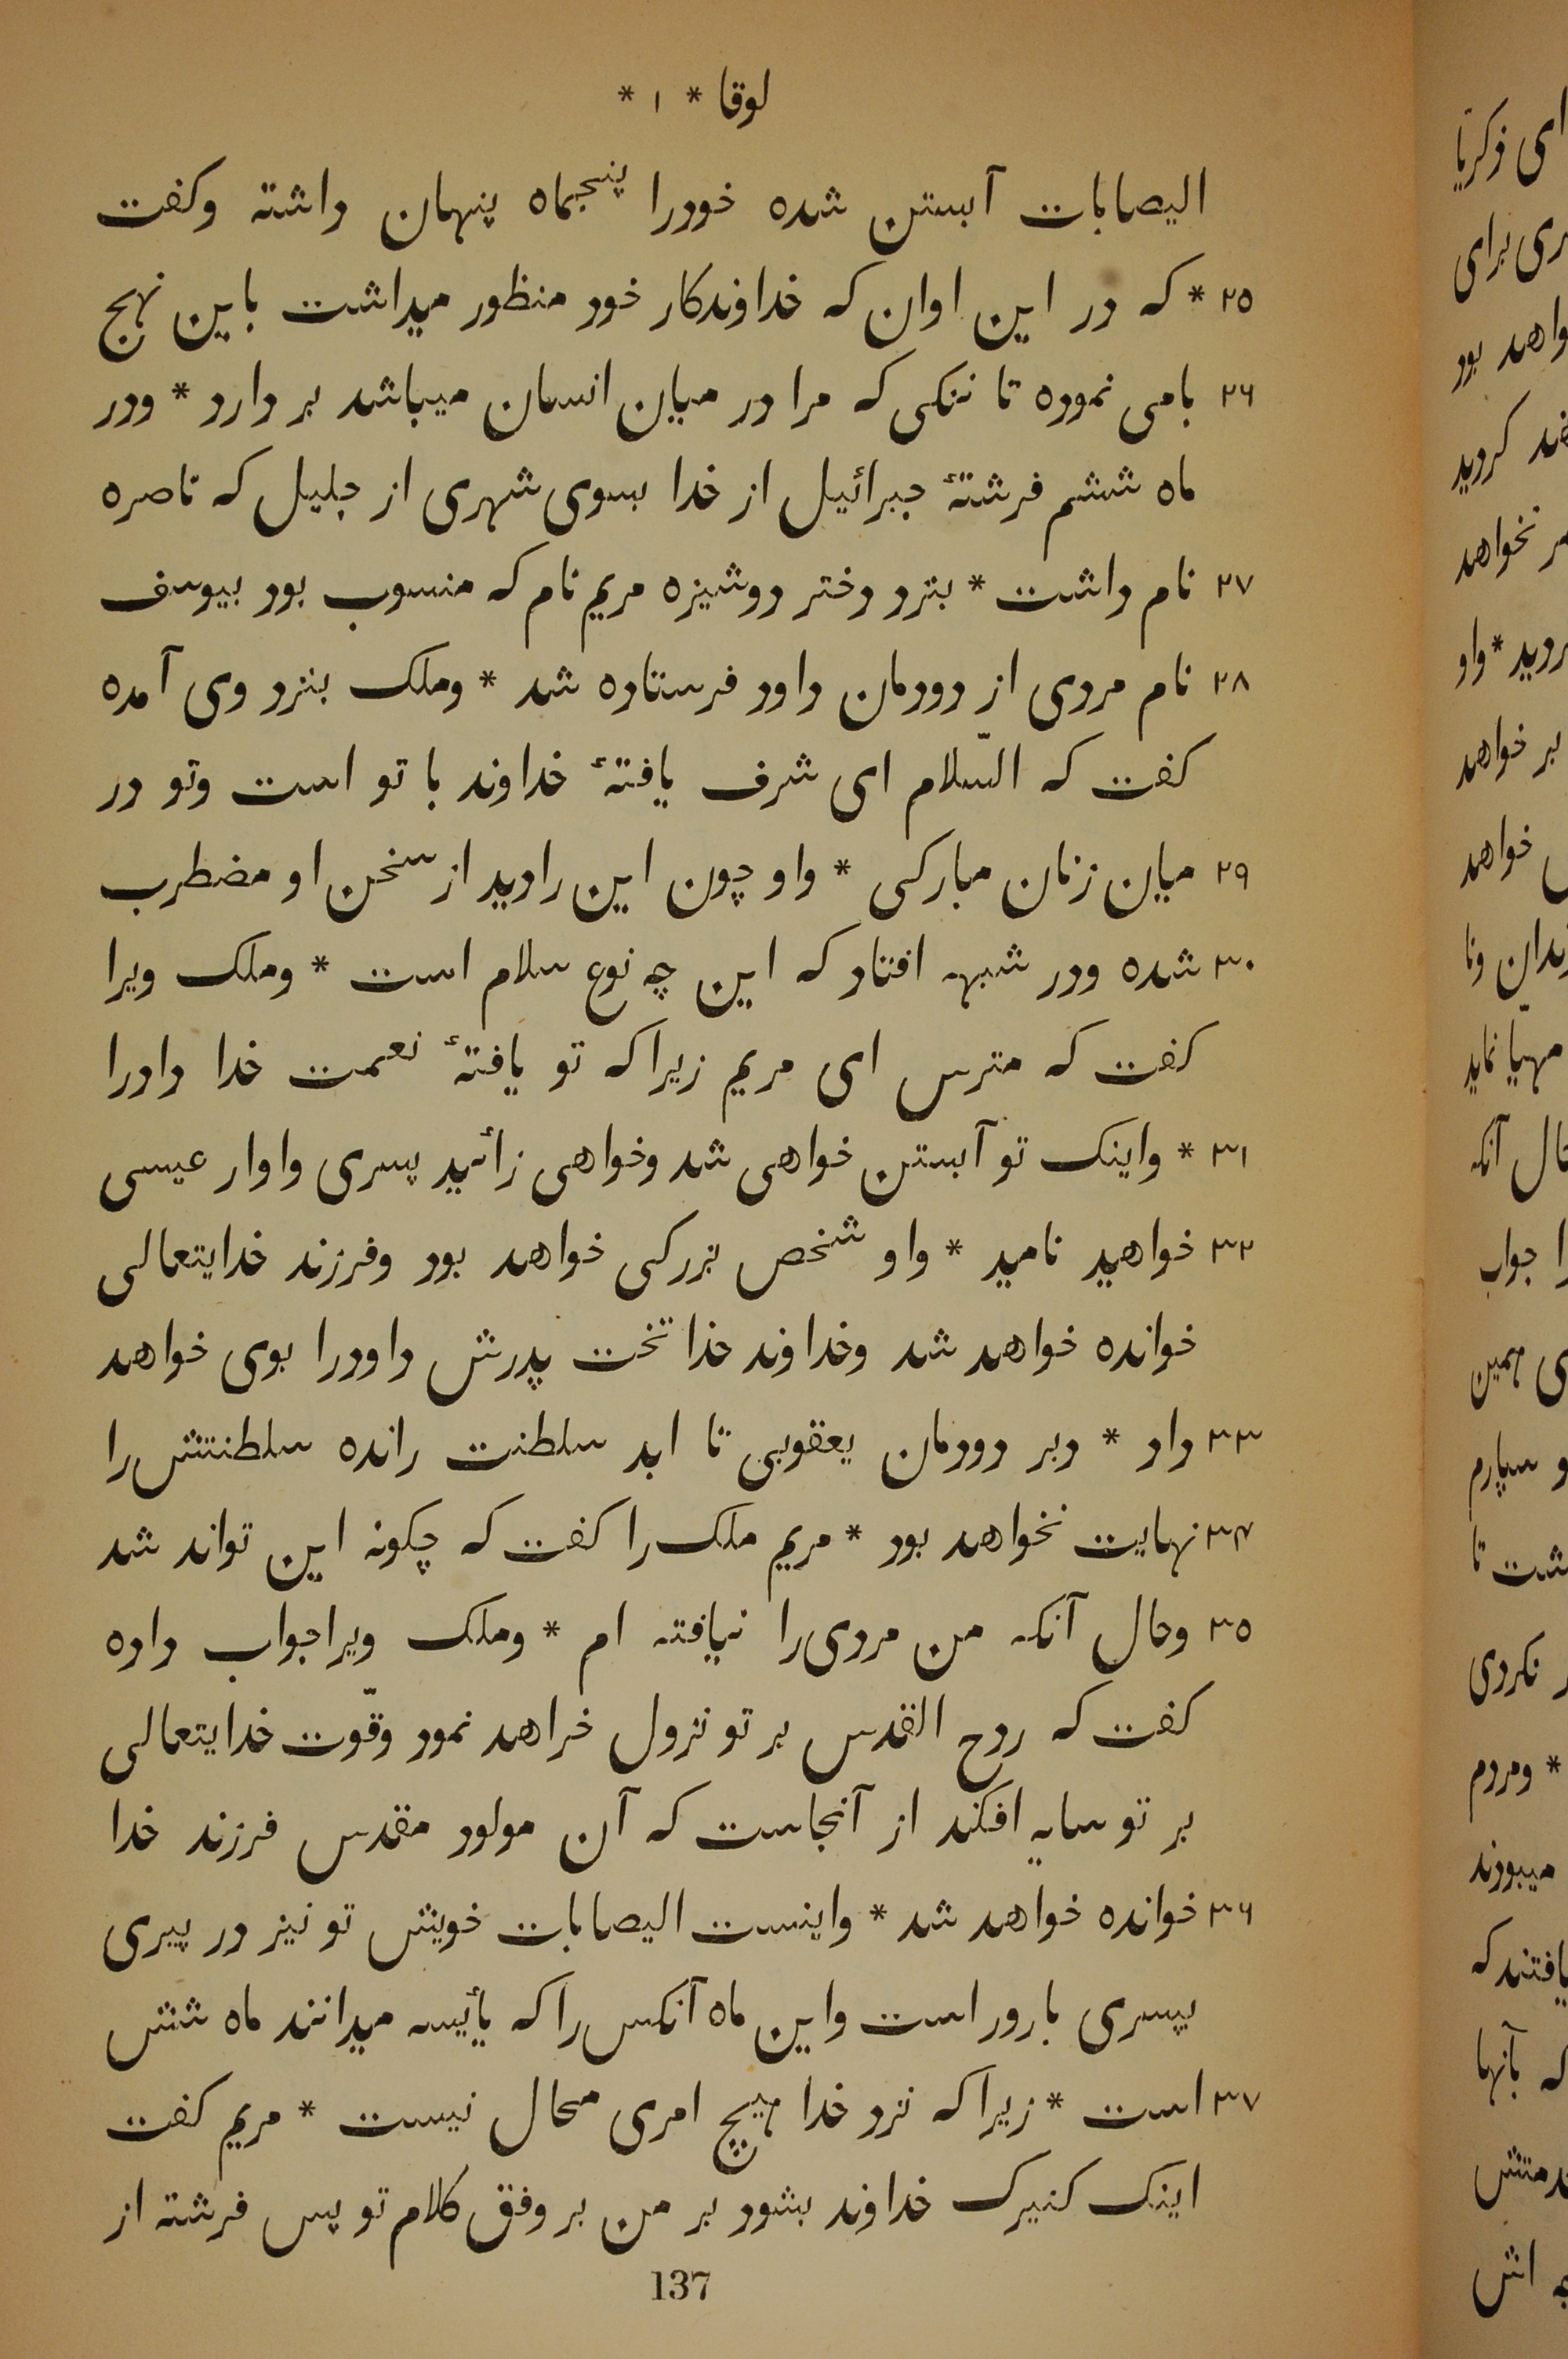 لوقا * ۱ *
الیصابات آبستن شده خودرا پنجماه پنهان داشته وکفت
۲۵ * که در این اوان که خداوندکار خود منظور میداشت باین نهج
۲۶ بامی نموده تا ننکی که مرا در میان انسان میباشد بر دارد * ودر
ماه ششم فرشتهٔ جبرائیل از خدا بسوی شهری از جلیل که ناصره
۲۷ نام داشت * بنزد دختر دوشیزه مریم نام که منسوب بود بیوسف
۲۸ نام مردی از دودمان داود فرستاده شد * وملک بنزد وی آمده
کفت که السّلام ای شرف یافتهٔ خداوند با تو است وتو در
۲۹ میان زنان مبارکی * واو چون این رادید از سخن او مضطرب
۳۰ شده ودر شبهه افتاد که این چه نوع سلام است * وملک ویرا
کفت که مترس ای مریم زیرا که تو یافتهٔ نعمت خدا دادرا
۳۱ * واینک تو آبستن خواهی شد وخواهی زائید پسری واوار عیسی
۳۲ خواهید نامید * واو شخص بزرکی خواهد بود وفرزند خدایتعالی
خوانده خواهد شد وخداوند خدا تخت پدرش داودرا بوی خواهد
۳۳ داد * وبر دودمان یعقوبی تا ابد سلطنت رانده سلطنتش را
۳۴ نهایت نخواهد بود * مریم ملک را کفت که چکونه این تواند شد
۳۵ وحال آنکه من مردی را نیافته ام * وملک ویرا جواب داده
کفت که روح القدس بر تو نزول خراهد نمود وقّوت خدایتعالی
بر تو سایه افکند از آنجاست که آن مولود مقدس فرزند خدا
۳۶ خوانده خواهد شد * واینست الیصابات خویش تو نیز در پیری
بپسری بارور است واین ماه آنکس را که یأیسه میدانند ماه شش
۳۷ است * زیرا که نزد خدا هیچ امری محال نیست * مریم کفت
اینک کنیرک خداوند بشود بر من بر وفق کلام تو پس فرشته از
137